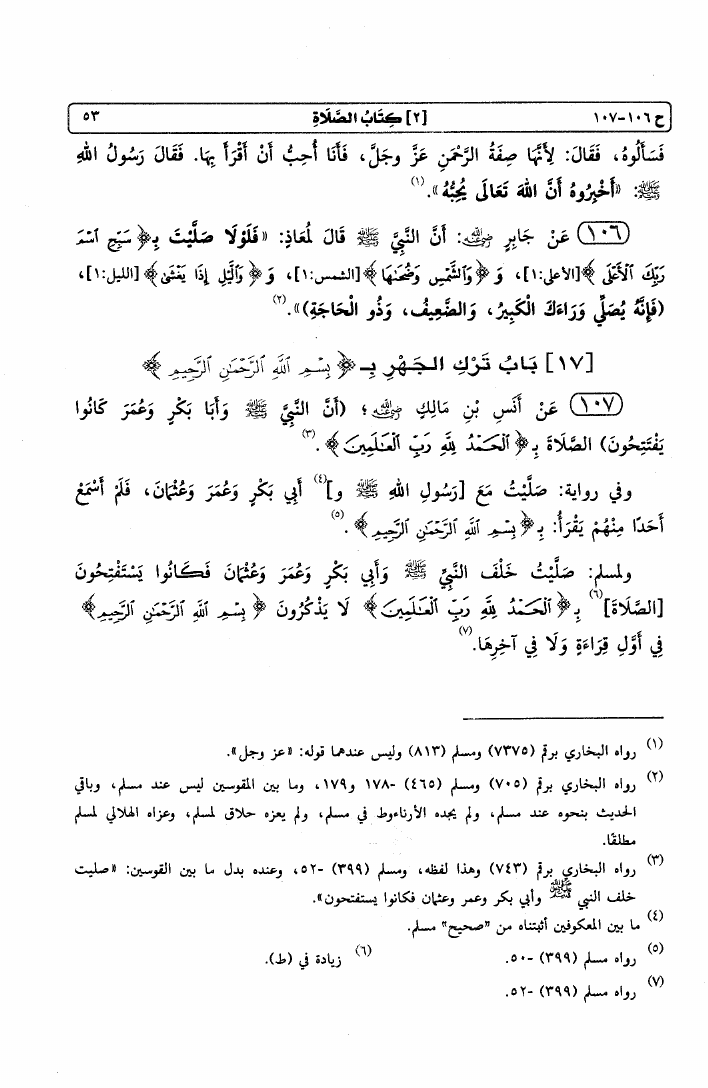 ح ١٠٦-١٠٧ [٢] كِتَابُ الصَّلَاةِ ٥٣
فَسَأَلُوهُ، فَقَالَ: لِأَنَّهَا صِفَةُ الرَّحْمَنِ عَزَّ وجَلَّ، فَأَنَا أُحِبُّ أَنْ أَقْرَأَ بِهَا. فَقَالَ رَسُولُ اللهِ
ﷺ: «أَخْبِرُوهُ أَنَّ اللهَ تَعَالَى يُحِبُّهُ».(١)
(١٠٦) عَنْ جَابِرٍ ﷺ: أَنَّ النَّبِيَّ ﷺ قَالَ لِمُعَاذٍ: «فَلَوْلَا صَلَّيْتَ بِـ﴿سَبِّحِ ٱسْمَ
رَبِّكَ ٱلْأَعْلَى﴾[الأعلى:١]، وَ﴿وَٱلشَّمْسِ وَضُحَىٰهَا﴾[الشمس:١]، وَ﴿وَٱلَّيْلِ إِذَا يَغْشَىٰ﴾[الليل:١]،
(فَإِنَّهُ يُصَلِّي وَرَاءَكَ الْكَبِيرُ، وَالضَّعِيفُ، وَذُو الْحَاجَةِ)».(٢)
[١٧] بَابُ تَرْكِ الجَهْرِ بِـ﴿بِسْمِ ٱللَّهِ ٱلرَّحْمَٰنِ ٱلرَّحِيمِ﴾
(١٠٧) عَنْ أَنَسِ بْنِ مَالِكٍ ؛ (أَنَّ النَّبِيَّ ﷺ وَأَبَا بَكْرٍ وَعُمَرَ كَانُوا
يَفْتَتِحُونَ) الصَّلَاةَ بِـ﴿ٱلْحَمْدُ لِلَّهِ رَبِّ ٱلْعَٰلَمِينَ﴾.(٣)
وفي رواية: صَلَّيْتُ مَعَ [رَسُولِ اللهِ ﷺ و](٤) أَبِي بَكْرٍ وَعُمَرَ وَعُثْمَانَ، فَلَمْ أَسْمَعْ
أَحَدًا مِنْهُمْ يَقْرَأُ: بِـ﴿بِسْمِ ٱللَّهِ ٱلرَّحْمَٰنِ ٱلرَّحِيمِ﴾.(٥)
ولمسلم: صَلَّيْتُ خَلْفَ النَّبِيِّ ﷺ وَأَبِي بَكْرٍ وَعُمَرَ وَعُثْمَانَ فَكَانُوا يَسْتَفْتِحُونَ
[الصَّلَاةَ](٦) بِـ﴿ٱلْحَمْدُ لِلَّهِ رَبِّ ٱلْعَٰلَمِينَ﴾ لَا يَذْكُرُونَ ﴿بِسْمِ ٱللَّهِ ٱلرَّحْمَٰنِ ٱلرَّحِيمِ﴾
فِي أَوَّلِ قِرَاءَةٍ وَلَا فِي آخِرِهَا.(٧)
(١) رواه البخاري برقم (٧٣٧٥) ومسلم (٨١٣) وليس عندهما قوله: «عز وجل».
(٢) رواه البخاري برقم (٧٠٥) ومسلم (٤٦٥) -١٧٨ و١٧٩، وما بين المقوسين ليس عند مسلم، وباقي
الحديث بنحوه عند مسلم، ولم يجده الأرناءوط في مسلم، ولم يعزه حلاق لمسلم، وعزاه الهلالي لمسلم
مطلقًا.
(٣) رواه البخاري برقم (٧٤٣) وهذا لفظه، ومسلم (٣٩٩) -٥٢، وعنده بدل ما بين القوسين: «صليت
خلف النبي ﷺ وأبي بكر وعمر وعثمان فكانوا يستفتحون».
(٤) ما بين المعكوفين أثبتناه من "صحيح" مسلم.
(٥) رواه مسلم (٣٩٩) -٥٠. (٦) زيادة في (ط).
(٧) رواه مسلم (٣٩٩) -٥٢.